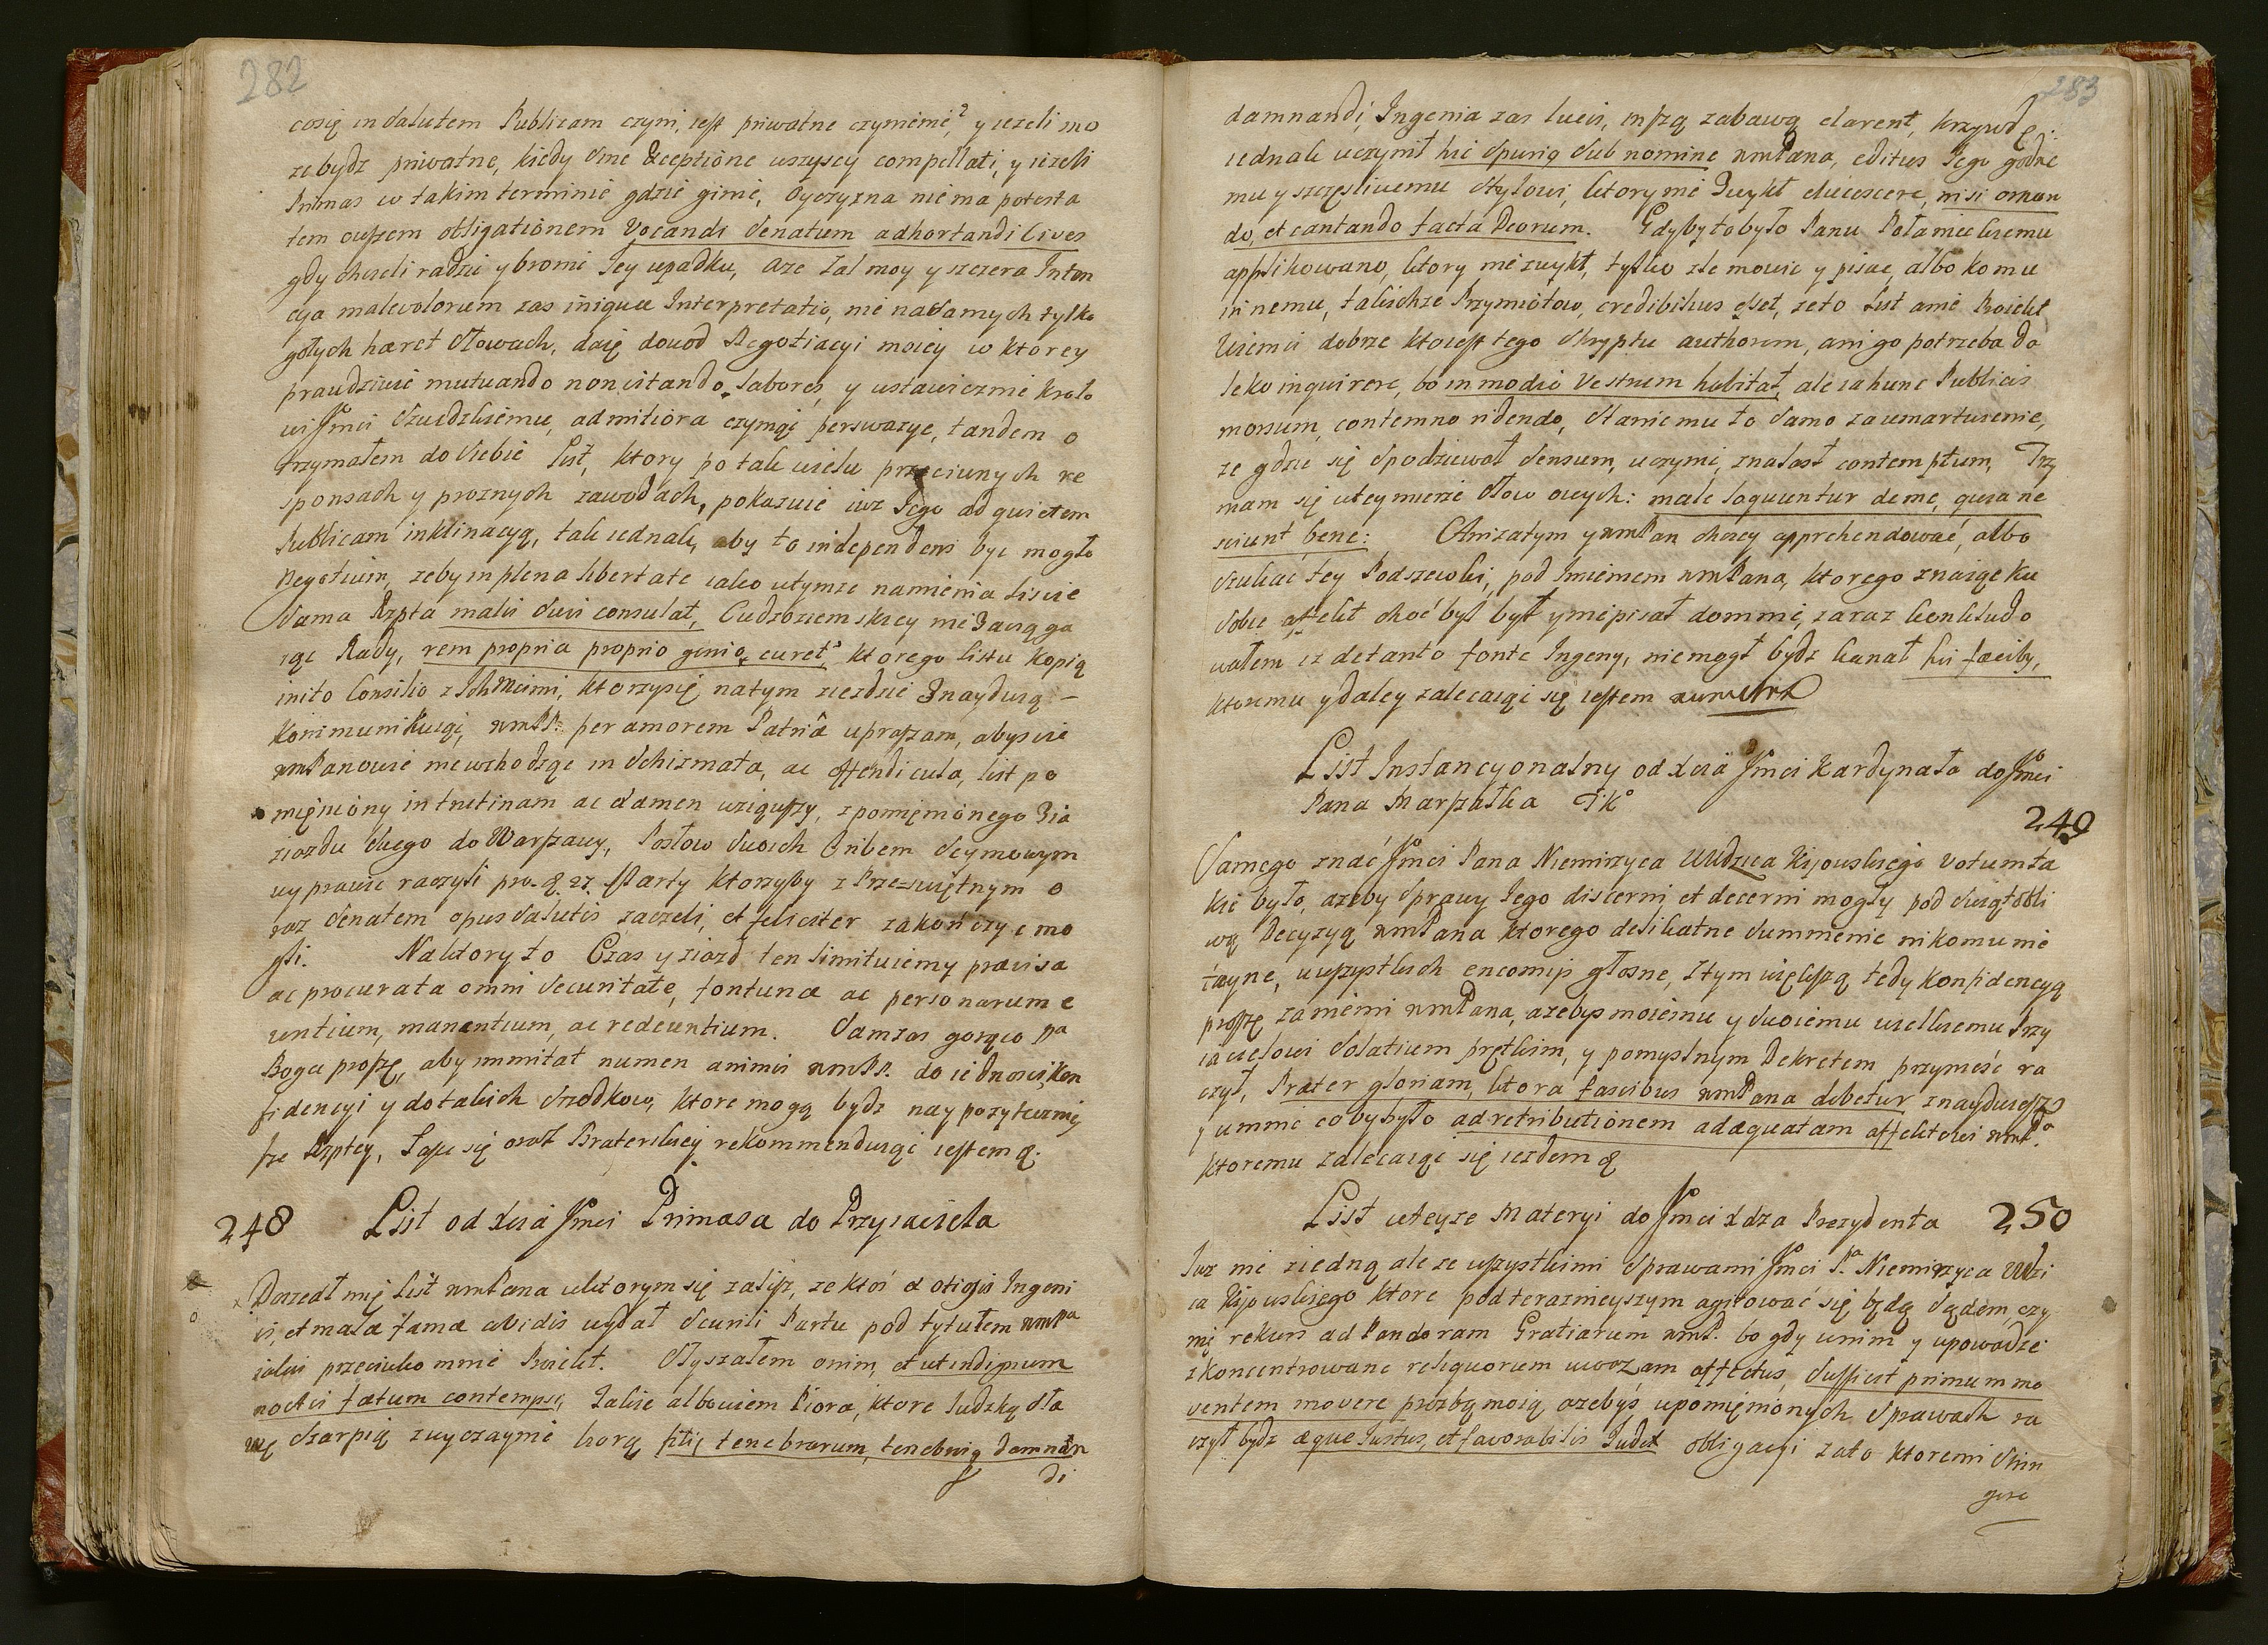 282
cosię in Salutem Publicam czyni, iest priwatne czynienie? y iezeli mo
ze bydz priwatne, kiedy sine Exceptione wszyscy compellati, y iezeli
Primas w takim terminie gdzie ginie, Oyczyzna nie ma potesta
tem owszem obligationem Vocandi Senatum adhortandi Cives
gdy chcieli radzic y bronic Jey upadku, aze Zal moy y szczera Inten
cya malevolorum zas iniqua Interpretatio, nie na samych tylko
gołych haeret Słowach, daię dowod Negotiacyi moiey w ktorey
prawdziwie mutuando non citando labores, y ustawicznie Krolo
wi Jmci Szwedzkiemu, ad mitiora czyniąc perswazye, tandem o
trzymałem do Siebie List, ktory po tak wielu przeciwnych re
sponsach y proznych zawodach, pokazuie iuz Jego ad quietem
Publicam inklinacyą, tak iednak, aby to independens byc mogło
Negotium, zeby in plena libertate iako w tymze namienia Liscie
Sama Rzpta malis Suis consulat, Cudzoziemskiey nie Zaciąga
iąc Rady, rem propria proprio genio curet: ktorego listu Kopią
inito Consilio z Ichmciami, ktorzy się natym ziezdzie Znayduią –
Kommunikuiąc, wmPP. per amorem Patriæ upraszam, abyscie
wmPanowie niewchodząc in Schizmata, ac offendicula, list po
mięniony in trutinam ac examen wziąwszy, z pomięnionego Zia
ziazdu Swego do Warszawy, Posłow Swoich Tribem Seymowym
wyprawic raczyli pro. d. 27. Marty ktorzyby z Przeswiętnym o
raz Senatem opus Salutis zaczeli, et feliciter zakończyc mo
gli. Naktory to Czas y ziazd ten limituiemy praevisa
ac procurata omni Securitate, fortunæ ac personarum e
untium, manentium, ac redeuntium. Samzas gorąco Pa
Boga proszę, aby immitat numen animis wmPP. do iednosci, kon
fidencyi y do takich Srzodkow, ktore mogą bydz naypozytecznie
sze Rzptey, Łasce się oraz Braterskiey rekommenduiąc iestem &.
248 List od Xcia Jmci Primasa do Przyiaciela
Doszedł mię List wmPana wktorym się zalisz, ze ktoś ex otiosis Ingeni
is, et mala fama avidis wydał Scurili Partu pod tytułem wmPa
iakis przeciwko mnie Proiekt. Słyszałem onim, et ut indignum
noctis fætum contempsi, Zalise albowiem Piora, ktore ludzką sła
wę Szarpią zwyczaynie horą filij tenebrarum, tenebris damnan
di
283
damnandi, Ingenia zas lucis, inszą zabawą clarent, krzywdę
iednak uczynił hic Spurio Sub nomine wmPana, editus Jego godne
mu y szczęsliwemu Stylowi, ktory nie Zwykł clarescere, nisi ornan
do, et cantando facta Deorum. Gdyby to było Panu Potamickiemu
applikowano, ktory nie zwykł, tylko zle mowic y pisac, albo komu
innemu, takichze Przymiotow, credibilius esset, ze to List anie Proiekt
Wiem ci dobrze kto iest tego Skryptu authorem, ani go potrzeba da
leko inquirere, bo in medio Vestrum habitat, ale ia hunc Publicis
morsum, contemno ridendo, Stanie mu to Samo za umartwienie,
ze gdzie się Spodziewał Sensum, uczynic, znalazł contemptum, Trzy
mam się w tey mierze Słow owych: male loquuntur de me, quia ne
sciunt bene: Ani zatym y wmPan chciey apprehendować, albo
Szukać tey Podszewki, pod Imieniem wmPana, ktorego znaiąc ku
Sobie affekt choćbyś był y nie pisał do mnie, zaraz konkludo
wałem iz de tanto fonte Ingeny, niemogł bydz kanał his fæcibus,
ktoremu y daley zalecaiąc się iestem
List Instancyonalny od Xcia Jmci Kardynała do Jmci
Pana Marszałka T. K.
249
Samego znać Jmci Pana Niemirzyca Wdzica Kijowskiego Votum ta
kie było, azeby Sprawy Jego discerni et decerni mogły pod Swiątobli
wą Decyzyą wmPana ktorego delikatne Summienie nikomu nie
tayne, u wszystkich encomijs głosne, Z tym większą tedy konfidencyą
proszę za niemi wmPana, azebys moiemu y Swoiemu wielkiemu Przy
iacielowi Solatium prętkim, y pomyslnym Dekretem przynieść ra
czył, Præter gloriam, ktora fascibus wmPana debetur, znayduiesz
y u mnie coby było ad retributionem adæquatam affektowi wmPa
ktoremu zalecaiąc się iezdem &
List wteyze Materyi do Jmci Xdza Prezydenta 250
Iuz nie ziedną ale ze wszystkimi Sprawami Jmci Pa. Niemirzyca Wdzi
ca Kijowskiego ktore pod teraznieyszym agitować się będą Sądem, czy
nię rekurs ad Pandoram Gratiarum wmP. bo gdy w nim y u powadze
zkoncentrowane reliquorum uwazam affectus, Sufficit primum mo
ventem movere prozbą moią azebyś wpomięnionych Sprawach ra
czył bydz æque Iustus, et favorabilis Iudex obligacyi zato ktoremi Strin
gere